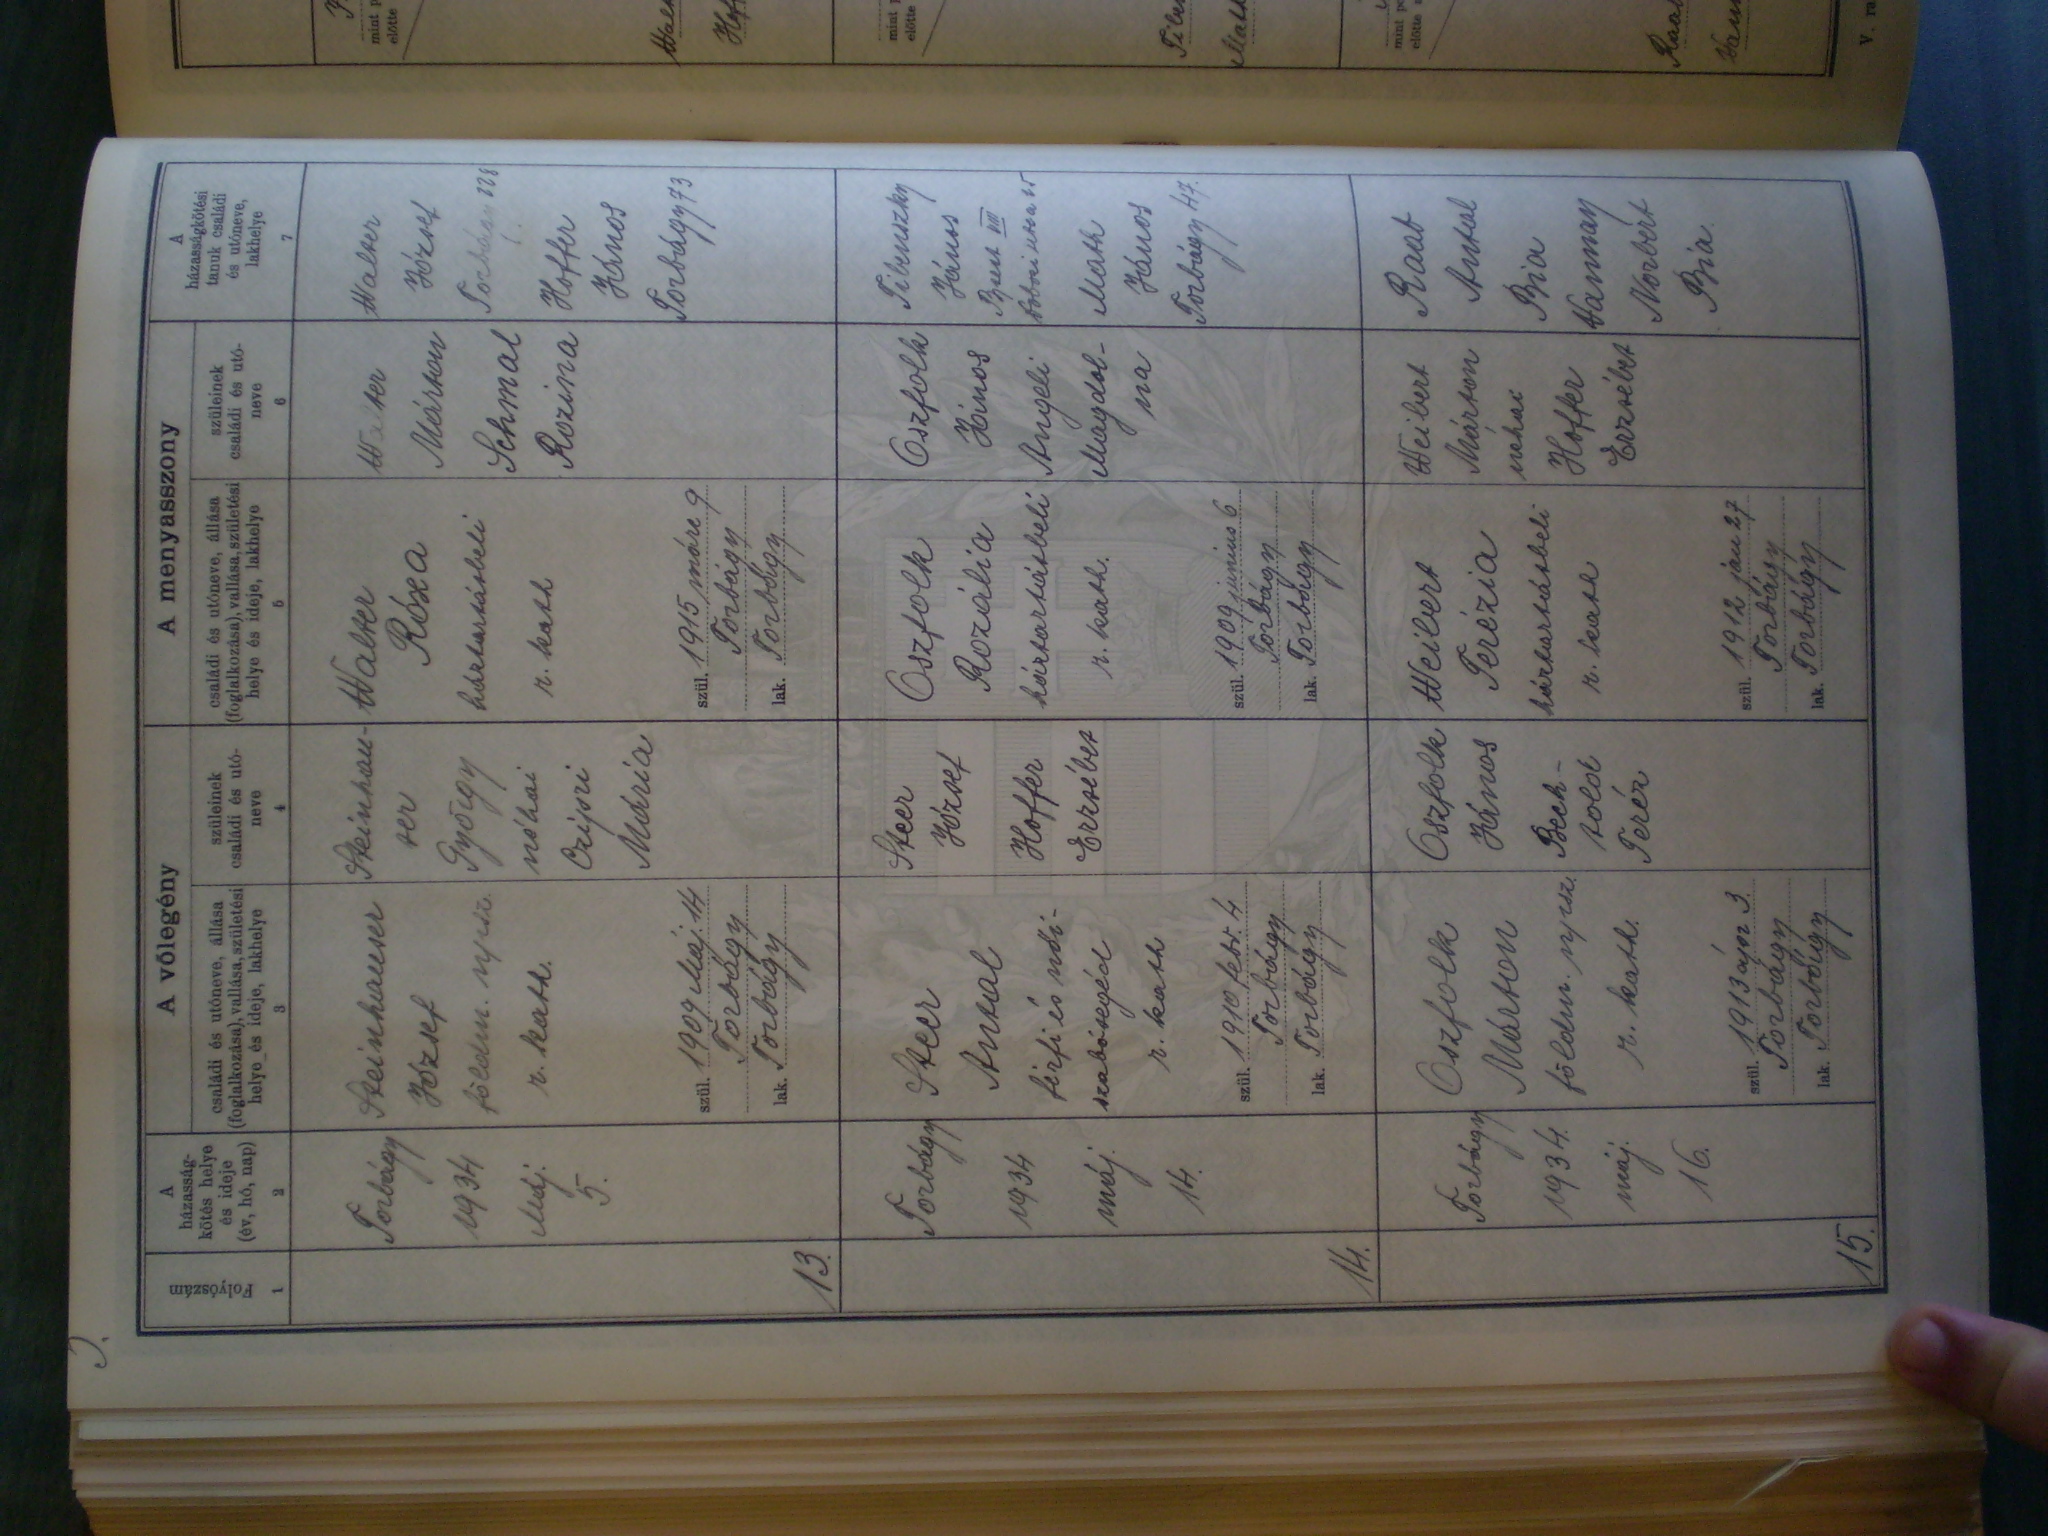 5.
Folyószám
1
A
házasság-
kötés helye
és ideje
(év, hó, nap)
2
A vőlegény
családi és utóneve, állása
(foglalkozása), vallása, születési
helye és ideje, lakhelye
3
szüleinek
családi és utó-
neve
4
A menyasszony
családi és utóneve, állása
(foglalkozása), vallása, születési
helye és ideje, lakhelye
5
szüleinek
családi és utó-
neve
6
A
házasságkötési
tanuk családi
és utóneve,
lakhelye
7
13.
Torbágy
1934
Máj.
5.
Steinhauser
József
földm. npsz.
r. kath.
szül. 1909 Máj. 14
Torbágy
lak. Torbágy
Steinhau-
ser
György
néhai
Czipri
Mária
Walter
Róza
háztartásbeli
r. kath
szül. 1915 márc 9
Torbágy
lak. Torbágy
Walter
Márton
Schmal
Rozina
Walter
József
Torbágy 228
Hoffer
János
Torbágy 73
14.
Torbágy
1934
máj.
14.
Steer
Antal
férfi és női-
szabósegéd
r. kath
szül. 1910 febr. 4
Torbágy
lak. Torbágy
Steer
József
Hoffer
Erzsébet
Oszfolk
Rozália
háztartásbeli
r. kath.
szül. 1909 junius 6
Torbágy
lak. Torbágy
Oszfolk
János
Angeli
Magdol-
na
Tibenszky
János
VIII
Math
János
Torbágy 47.
15.
Torbágy
1934.
máj.
16.
Oszfolk
Márton
földm. npsz.
r. kath.
szül. 1913 ápr 3.
Torbágy
lak. Torbágy
Oszfolk
János
Bech-
told
Teréz
Weibert
Terézia
háztartásbeli
r. kath
szül. 1912 jan 27
Torbágy
lak. Torbágy
Weibert
Márton
néhai
Hoffer
Erzsébet
Raab
Antal
Bia
Hannay
Norbert
Bia.
mint p
előtte
mint
előtte
előtte
V. ra